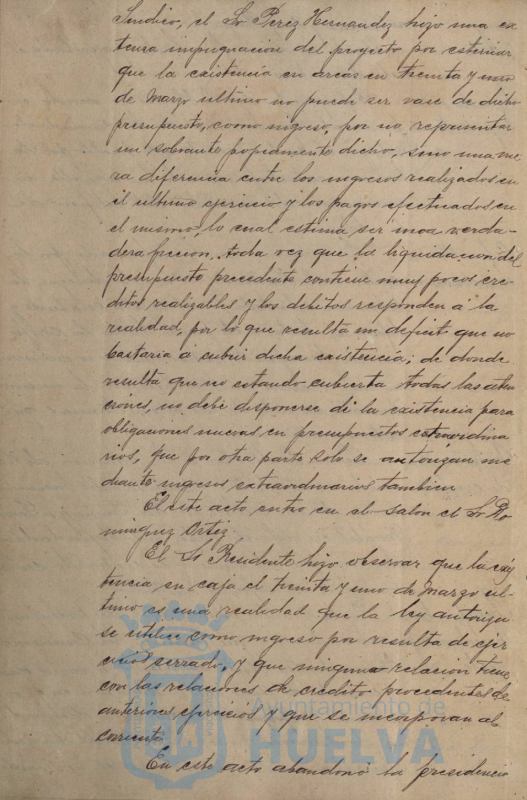 Síndico, el Sr Perez Hernandez hizo una ex
tensa impugnacion del proyecto por estimar
que la existencia en arcas en treinta y uno
de Marzo ultimo no puede ser vase de dicho
presupuesto, como ingreso, por no representar
un sobrante propiamente dicho, sino una me
ra diferencia entre los ingresos realizados en
el ultimo ejercicio y los pagos efectuados en
el mismo, lo cual estima ser una verda-
dera ficcion, toda vez que la liquidacion del
presupuesto precedente contiene muy pocos cre
ditos realizables y los debitos responden á la
realidad, por lo que resulta un deficit que no
bastaria a cubrir dicha existencia; de donde
resulta que no estando cubierta todas las aten
ciones, no debe disponerse de la existencia para
obligaciones nuevas en presupuestos extraordina
rios, que por otra parte solo se autorizan me
diante ingresos extraordinarios tambien
En este acto entro en el salon el Sr Do
minguez Ortiz.
El Sr Presidente hizo observar que la exis
tencia en caja el treinta y uno de Marzo ul-
timo es una realidad que la ley autoriza
se utilice como ingreso por resulta de ejer
cicios serrado, y que ninguna relacion tiene
con las relaciones de credito procedentes de
anteriores ejercicios y que se incorporan al
corriente.
En este acto abandonó la presidencia
Ayuntamiento de
HUELVA